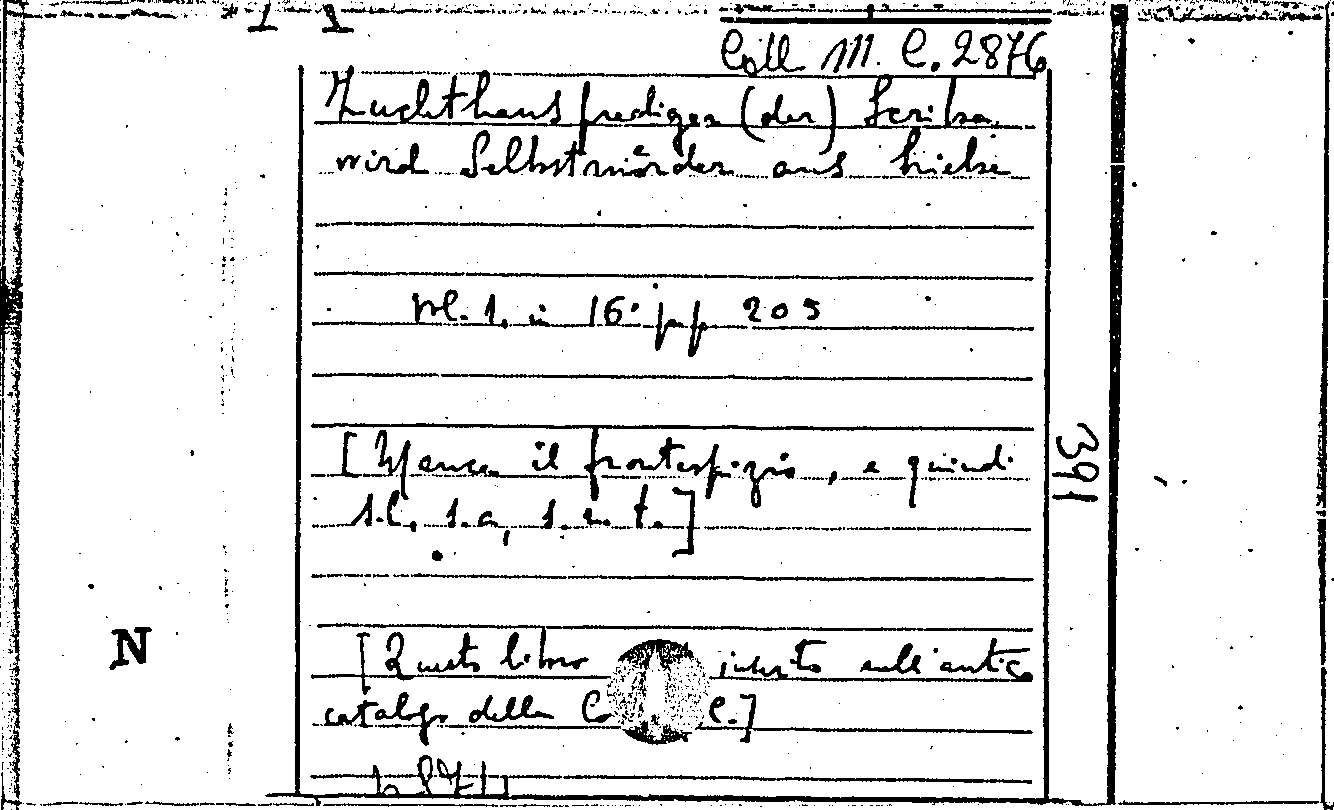 1 1
Coll M. C. 2876
Zuchthausprediger (der) Scriba
wird Selbstmörder aus Liebe
vol. 1. in 16° pp 205
[Manca il frontespizio, e quindi
s.l., s.a, s.n.t.]
391
N
[Questo libro inserto nell'antico
catalogo della C.]